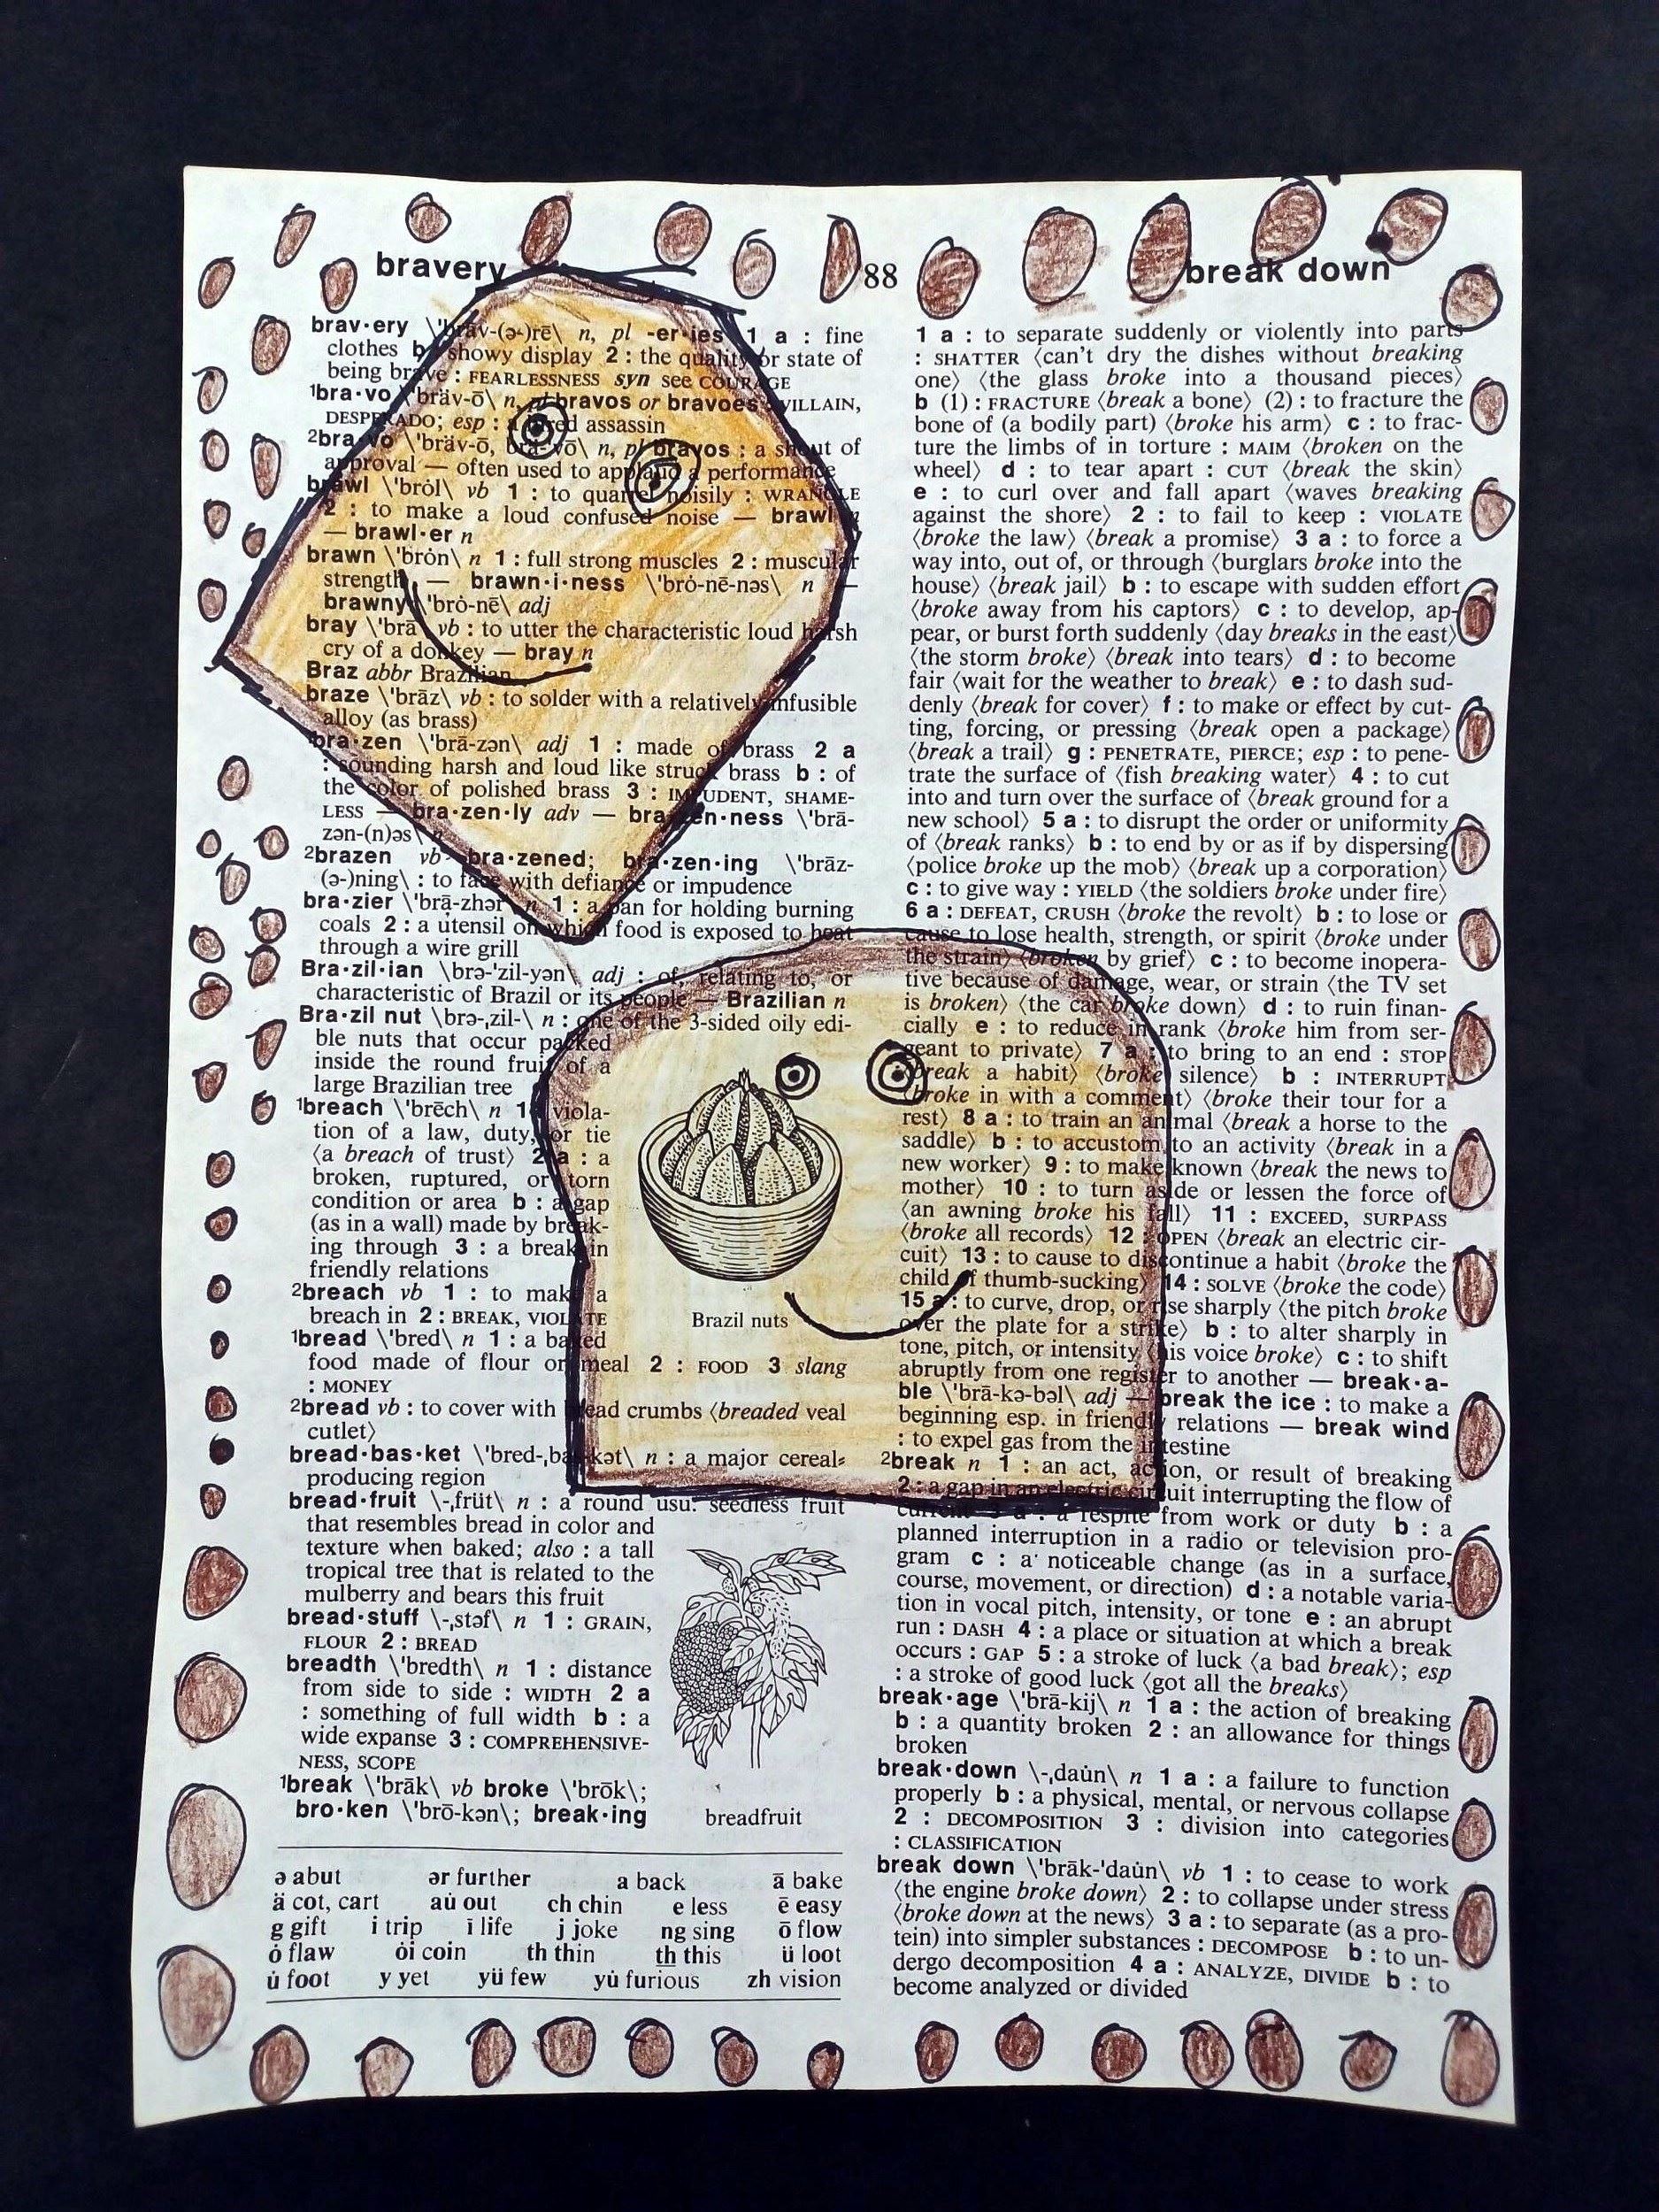 bravery 88 break down
brav·ery \ˈbrāv-(ə-)rē\ n, pl -er·ies 1 a : fine
clothes b : showy display 2 : the quality or state of
being brave : FEARLESSNESS syn see COURAGE
¹bra·vo \ˈbräv-ō\ n, pl bravos or bravoes : VILLAIN,
DESPERADO; esp : a hired assassin
²bra·vo \ˈbräv-ō, brä-ˈvō\ n, pl bravos : a shout of
approval — often used to applaud a performance
brawl \ˈbrȯl\ vb 1 : to quarrel noisily : WRANGLE
2 : to make a loud confused noise — brawl n
— brawl·er n
brawn \ˈbrȯn\ n 1 : full strong muscles 2 : muscular
strength — brawn·i·ness \ˈbrȯ-nē-nəs\ n —
brawny \ˈbrȯ-nē\ adj
bray \ˈbrā\ vb : to utter the characteristic loud harsh
cry of a donkey — bray n
Braz abbr Brazilian
braze \ˈbrāz\ vb : to solder with a relatively infusible
alloy (as brass)
¹bra·zen \ˈbrā-zən\ adj 1 : made of brass 2 a
: sounding harsh and loud like struck brass b : of
the color of polished brass 3 : IMPUDENT, SHAME-
LESS — bra·zen·ly adv — bra·zen·ness \ˈbrā-
zən-(n)əs\ n
²brazen vb bra·zened; bra·zen·ing \ˈbrāz-
(ə-)ning\ : to face with defiance or impudence
bra·zier \ˈbrā-zhər\ n 1 : a pan for holding burning
coals 2 : a utensil on which food is exposed to heat
through a wire grill
Bra·zil·ian \brə-ˈzil-yən\ adj : of, relating to, or
characteristic of Brazil or its people — Brazilian n
Bra·zil nut \brə-ˌzil-\ n : one of the 3-sided oily edi-
ble nuts that occur packed
inside the round fruit of a
large Brazilian tree
¹breach \ˈbrēch\ n 1 : viola-
tion of a law, duty, or tie
⟨a breach of trust⟩ 2 a : a
broken, ruptured, or torn
condition or area b : a gap
(as in a wall) made by break-
ing through 3 : a break in
friendly relations
²breach vb 1 : to make a
breach in 2 : BREAK, VIOLATE
Brazil nuts
¹bread \ˈbred\ n 1 : a baked
food made of flour or meal 2 : FOOD 3 slang
: MONEY
²bread vb : to cover with bread crumbs ⟨breaded veal
cutlet⟩
bread·bas·ket \ˈbred-ˌbas-kət\ n : a major cereal-
producing region
bread·fruit \-ˌfrüt\ n : a round usu. seedless fruit
that resembles bread in color and
texture when baked; also : a tall
tropical tree that is related to the
mulberry and bears this fruit
bread·stuff \-ˌstəf\ n 1 : GRAIN,
FLOUR 2 : BREAD
breadth \ˈbredth\ n 1 : distance
from side to side : WIDTH 2 a
: something of full width b : a
wide expanse 3 : COMPREHENSIVE-
NESS, SCOPE
¹break \ˈbrāk\ vb broke \ˈbrōk\;
bro·ken \ˈbrō-kən\; break·ing
breadfruit
ə abut ər further a back ā bake
ä cot, cart au̇ out ch chin e less ē easy
g gift i trip ī life j joke ng sing ō flow
ȯ flaw ȯi coin th thin th this ü loot
u̇ foot y yet yü few yu̇ furious zh vision
1 a : to separate suddenly or violently into parts
: SHATTER ⟨can't dry the dishes without breaking
one⟩ ⟨the glass broke into a thousand pieces⟩
b (1) : FRACTURE ⟨break a bone⟩ (2) : to fracture the
bone of (a bodily part) ⟨broke his arm⟩ c : to frac-
ture the limbs of in torture : MAIM ⟨broken on the
wheel⟩ d : to tear apart : CUT ⟨break the skin⟩
e : to curl over and fall apart ⟨waves breaking
against the shore⟩ 2 : to fail to keep : VIOLATE
⟨broke the law⟩ ⟨break a promise⟩ 3 a : to force a
way into, out of, or through ⟨burglars broke into the
house⟩ ⟨break jail⟩ b : to escape with sudden effort
⟨broke away from his captors⟩ c : to develop, ap-
pear, or burst forth suddenly ⟨day breaks in the east⟩
⟨the storm broke⟩ ⟨break into tears⟩ d : to become
fair ⟨wait for the weather to break⟩ e : to dash sud-
denly ⟨break for cover⟩ f : to make or effect by cut-
ting, forcing, or pressing ⟨break open a package⟩
⟨break a trail⟩ g : PENETRATE, PIERCE; esp : to pene-
trate the surface of ⟨fish breaking water⟩ 4 : to cut
into and turn over the surface of ⟨break ground for a
new school⟩ 5 a : to disrupt the order or uniformity
of ⟨break ranks⟩ b : to end by or as if by dispersing
⟨police broke up the mob⟩ ⟨break up a corporation⟩
c : to give way : YIELD ⟨the soldiers broke under fire⟩
6 a : DEFEAT, CRUSH ⟨broke the revolt⟩ b : to lose or
cause to lose health, strength, or spirit ⟨broke under
the strain⟩ ⟨broken by grief⟩ c : to become inopera-
tive because of damage, wear, or strain ⟨the TV set
is broken⟩ ⟨the car broke down⟩ d : to ruin finan-
cially e : to reduce in rank ⟨broke him from ser-
geant to private⟩ 7 a : to bring to an end : STOP
⟨break a habit⟩ ⟨broke silence⟩ b : INTERRUPT
⟨broke in with a comment⟩ ⟨broke their tour for a
rest⟩ 8 a : to train an animal ⟨break a horse to the
saddle⟩ b : to accustom to an activity ⟨break in a
new worker⟩ 9 : to make known ⟨break the news to
mother⟩ 10 : to turn aside or lessen the force of
⟨an awning broke his fall⟩ 11 : EXCEED, SURPASS
⟨broke all records⟩ 12 : OPEN ⟨break an electric cir-
cuit⟩ 13 : to cause to discontinue a habit ⟨broke the
child of thumb-sucking⟩ 14 : SOLVE ⟨broke the code⟩
15 a : to curve, drop, or rise sharply ⟨the pitch broke
over the plate for a strike⟩ b : to alter sharply in
tone, pitch, or intensity ⟨his voice broke⟩ c : to shift
abruptly from one register to another — break·a-
ble \ˈbrā-kə-bəl\ adj — break the ice : to make a
beginning esp. in friendly relations — break wind
: to expel gas from the intestine
²break n 1 : an act, action, or result of breaking
2 : a gap in an electric circuit interrupting the flow of
current 3 a : a respite from work or duty b : a
planned interruption in a radio or television pro-
gram c : a noticeable change (as in a surface,
course, movement, or direction) d : a notable varia-
tion in vocal pitch, intensity, or tone e : an abrupt
run : DASH 4 : a place or situation at which a break
occurs : GAP 5 : a stroke of luck ⟨a bad break⟩; esp
: a stroke of good luck ⟨got all the breaks⟩
break·age \ˈbrā-kij\ n 1 a : the action of breaking
b : a quantity broken 2 : an allowance for things
broken
break·down \-ˌdau̇n\ n 1 a : a failure to function
properly b : a physical, mental, or nervous collapse
2 : DECOMPOSITION 3 : division into categories
: CLASSIFICATION
break down \ˈbrāk-ˈdau̇n\ vb 1 : to cease to work
⟨the engine broke down⟩ 2 : to collapse under stress
⟨broke down at the news⟩ 3 a : to separate (as a pro-
tein) into simpler substances : DECOMPOSE b : to un-
dergo decomposition 4 a : ANALYZE, DIVIDE b : to
become analyzed or divided